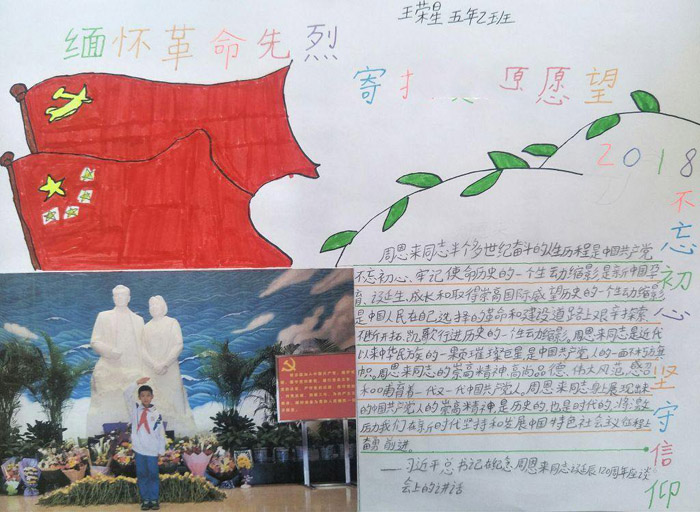 王荣星 五年2班
缅怀革命先烈
寄 原愿望
2018
不忘初心
坚守信仰
周恩来同志半个多世纪奋斗的人生历程是中国共产党
不忘初心、牢记使命历史的一个生动缩影是新中国孕
育、诞生、成长和取得崇高国际威望历史的一个生动缩影
是中国人民在自己选择的革命和建设道路上艰辛探索
不断开拓、凯歌行进历史的一个生动缩影。周恩来同志是近代
以来中华民族的一颗璀璨巨星是中国共产党人的一面不朽旗
帜。周恩来同志的崇高精神、高尚品德、伟大风范、感召
和哺育着一代又一代中国共产党人。周恩来同志身上展现出来
的中国共产党人的崇高精神是历史的,也是时代的,将激
励我们在新时代坚持和发展中国特色社会主义征程上
奋勇前进。
——习近平总书记在纪念周恩来同志诞辰120周年座谈
会上的讲话